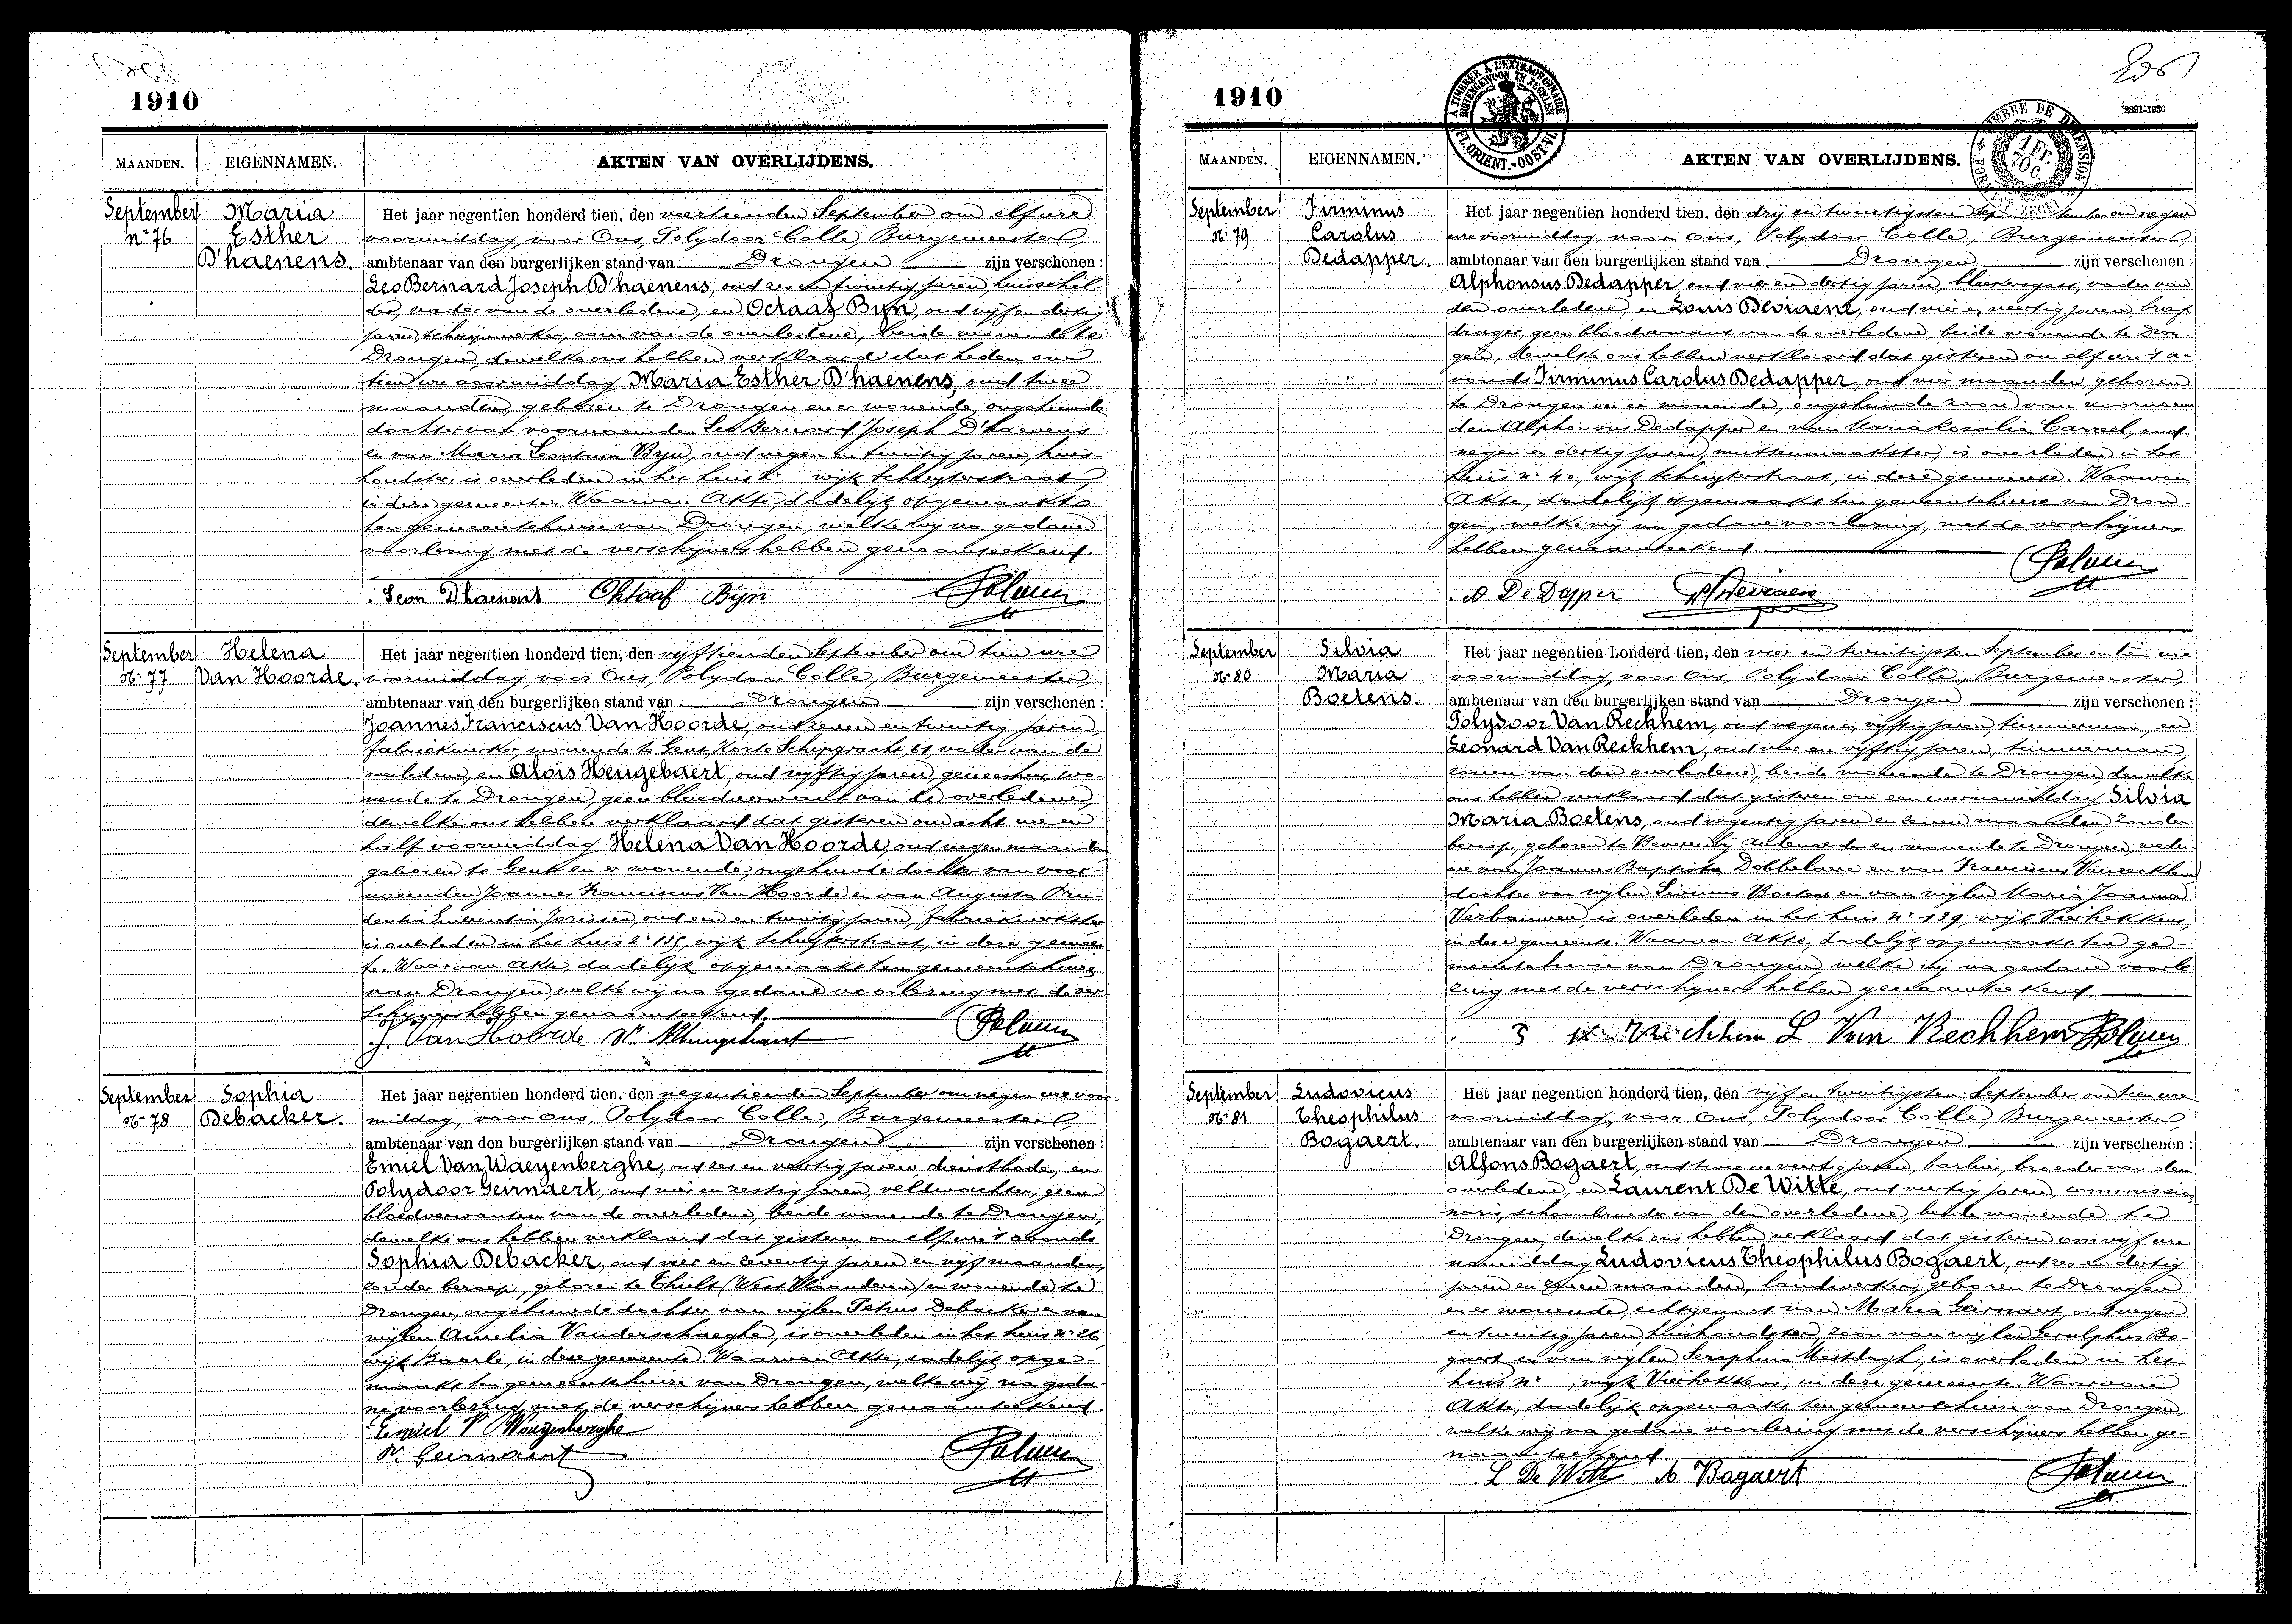 1910
MAANDEN. EIGENNAMEN. AKTEN VAN OVERLIJDENS.
September Maria
nº 76 Esther
D'haenens.
Het jaar negentien honderd tien, den veertienden September om elf ure
voormiddag, voor Ons, Polydoor Colle, Burgemeester,
ambtenaar van den burgerlijken stand van Drongen zijn verschenen :
Leo Bernard Joseph D'haenens, oud zes en twintig jaren, huisschil-
der, vader van de overledene, en Octaaf Byn, oud vijf en dertig
jaren, schrijnwerker, oom van de overledene, beide wonende te
Drongen, dewelke ons hebben verklaard dat heden om
tien ure voormiddag Maria Esther D'haenens, oud twee
maanden, geboren te Drongen en er wonende, ongehuwde
dochter van voornoemden Leo Bernard Joseph D'haenens
en van Maria Leontina Byn, oud negen en twintig jaren, huis-
houdster, is overleden in het huis nº wijk Schuyterstraat,
in deze gemeente. Waarvan Akte, dadelijk opgemaakt
ten gemeentehuize van Drongen, welke wij na gedane
voorlezing met de verschijners hebben genaamteekend.
Leon Dhaenens Oktaaf Bijn
September Helena
Nº 77 Van Hoorde.
Het jaar negentien honderd tien, den vijftienden September om tien ure
voormiddag, voor Ons, Polydoor Colle, Burgemeester,
ambtenaar van den burgerlijken stand van Drongen zijn verschenen :
Joannes Franciscus Van Hoorde, oud zeven en twintig jaren,
fabriekwerker, wonende te Gent, Korte Schipgracht, 61, vader van de
overledene, en Aloïs Heugebaert, oud vijftig jaren, geneesheer, wo-
nende te Drongen, geen bloedverwant van de overledene,
dewelke ons hebben verklaard dat gisteren om acht ure en
half voormiddag Helena Van Hoorde, oud negen maanden,
geboren te Gent en er wonende, ongehuwde dochter van voor-
noemden Joannes Franciscus Van Hoorde en van Augusta Pru-
dentia Juventia Jorissen, oud een en twintig jaren, fabriekwerkster
is overleden in het huis nº 115, wijk Schuyterstraat, in deze gemeen-
te. Waarvan Akte, dadelijk opgemaakt ten gemeentehuize
van Drongen, welke wij na gedane voorlezing met de ver-
schijners hebben genaamteekend.
J. Van Hoorde
September Sophia
Nº 78 Debacker.
Het jaar negentien honderd tien, den negentienden September om negen ure voor-
middag, voor Ons, Polydoor Colle, Burgemeester,
ambtenaar van den burgerlijken stand van Drongen zijn verschenen :
Emiel Van Waeyenberghe, oud zes en veertig jaren, dienstbode, en
Polydoor Geirnaert, oud vier en zestig jaren, veldwachter, geen
bloedverwanten van de overledene, beide wonende te Drongen,
dewelke ons hebben verklaard dat gisteren om elf ure 's avonds
Sophia Debacker, oud vier en zeventig jaren en vijf maanden,
zonder beroep, geboren te Thielt (West Vlaanderen) en wonende te
Drongen, ongehuwde dochter van wijlen Petrus Debacker en van
wijlen Amelia Vanderschaeghe, is overleden in het huis nº 26
wijk Baarle, in deze gemeente. Waarvan Akte, dadelijk opge-
maakt ten gemeentehuize van Drongen, welke wij na geda-
ne voorlezing met de verschijners hebben genaamteekend.
Emiel V Waeyenberghe
P. Geirnaert
1910
A TIMBRER A L'EXTRAORDINAIRE
BUITENGEWOON TE ZEGELEN
FL. ORIENT.-OOST VL.
TIMBRE DE DIMENSION
1 Fr. 70 C.
2891-1936
MAANDEN. EIGENNAMEN. AKTEN VAN OVERLIJDENS.
September Firminus
Nº 79 Carolus
Dedapper.
Het jaar negentien honderd tien, den drij en twintigsten September om negen
ure voormiddag, voor Ons, Polydoor Colle, Burgemeester,
ambtenaar van den burgerlijken stand van Drongen zijn verschenen :
Alphonsus Dedapper, oud vier en dertig jaren, bleekersgast, vader van
den overledene, en Louis Deviaene, oud vier en veertig jaren, brief-
drager, geen bloedverwant van de overledene, beide wonende te Dron-
gen, dewelke ons hebben verklaard dat gisteren om elf ure 's a-
vonds Firminus Carolus Dedapper, oud vier maanden, geboren
te Drongen en er wonende, ongehuwde zoon van voornoem-
den Alphonsus Dedapper en van Maria Rosalia Carreel, oud
negen en dertig jaren, mutsenmaakster, is overleden in het
huis nº 40, wijk Schuyterstraat, in deze gemeente. Waarvan
Akte, dadelijk opgemaakt ten gemeentehuize van Dron-
gen, welke wij na gedane voorlezing, met de verschijners
hebben genaamteekend.
A De Dapper
September Silvia
Nº 80 Maria
Boetens.
Het jaar negentien honderd tien, den vier en twintigsten September om tien ure
voormiddag, voor Ons, Polydoor Colle, Burgemeester,
ambtenaar van den burgerlijken stand van Drongen zijn verschenen :
Polydoor Van Reckhem, oud negen en vijftig jaren, timmerman, en
Leonard Van Reckhem, oud vier en vijftig jaren, timmerman,
zonen van den overledene, beide wonende te Drongen, dewelke
ons hebben verklaard dat gisteren om een ure namiddag Silvia
Maria Boetens, oud negentig jaren en zeven maanden, zonder
beroep, geboren te Bevere bij Audenaerde en wonende te Drongen, wedu-
we van Joannes Baptista Dobbelaere en van Franciscus Vanreckhem
dochter van wijlen Livinus Boetens en van wijlen Maria Joanna
Verbauwen, is overleden in het huis nº 139, wijk Vierhekkens,
in deze gemeente. Waarvan Akte, dadelijk opgemaakt ten ge-
meentehuize van Drongen, welke wij na gedane voorle-
zing met de verschijners hebben genaamteekend.
L Van Rechhem
September Ludovicus
Nº 81 Theophilus
Bogaert.
Het jaar negentien honderd tien, den vijf en twintigsten September om tien ure
voormiddag, voor Ons, Polydoor Colle, Burgemeester,
ambtenaar van den burgerlijken stand van Drongen zijn verschenen :
Alfons Bogaert, oud twee en veertig jaren, barbier, broeder van den
overledene, en Laurent De Witte, oud veertig jaren, commissio-
naris, schoonbroeder van den overledene, beide wonende te
Drongen, dewelke ons hebben verklaard dat gisteren om vijf ure
namiddag Ludovicus Theophilus Bogaert, oud zes en dertig
jaren en zeven maanden, landwerker, geboren te Drongen
en er wonende, echtgenoot van Maria Geirnaert, oud negen
en twintig jaren, huishoudster, zoon van wijlen Ereulphus Bo-
gaert en van wijlen Seraphina Mestdagh, is overleden in het
huis nº , wijk Vierhekkens, in deze gemeente. Waarvan
Akte, dadelijk opgemaakt ten gemeentehuize van Drongen,
welke wij na gedane voorlezing met de verschijners hebben ge-
naamteekend.
L De Witte A Bogaert